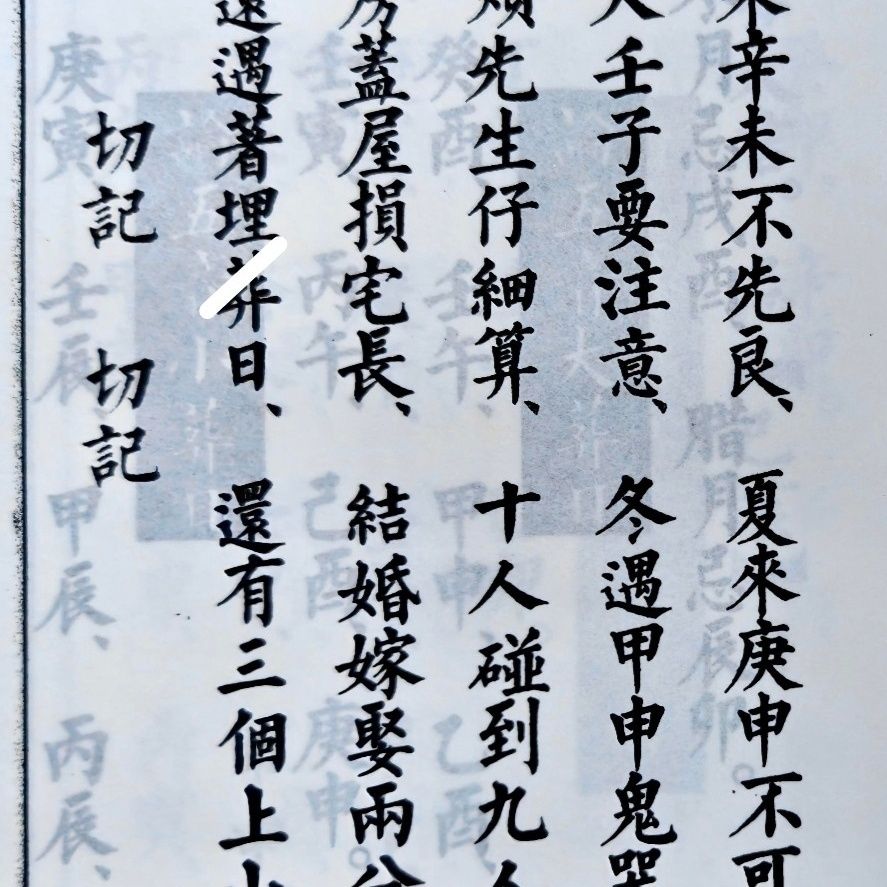 辛未不先良、夏來庚申不可
壬子要注意、冬遇甲申鬼哭
先生仔細算、十人碰到九人
蓋屋損宅長、結婚嫁娶兩分
遇著埋葬日、還有三個上
切記 切記